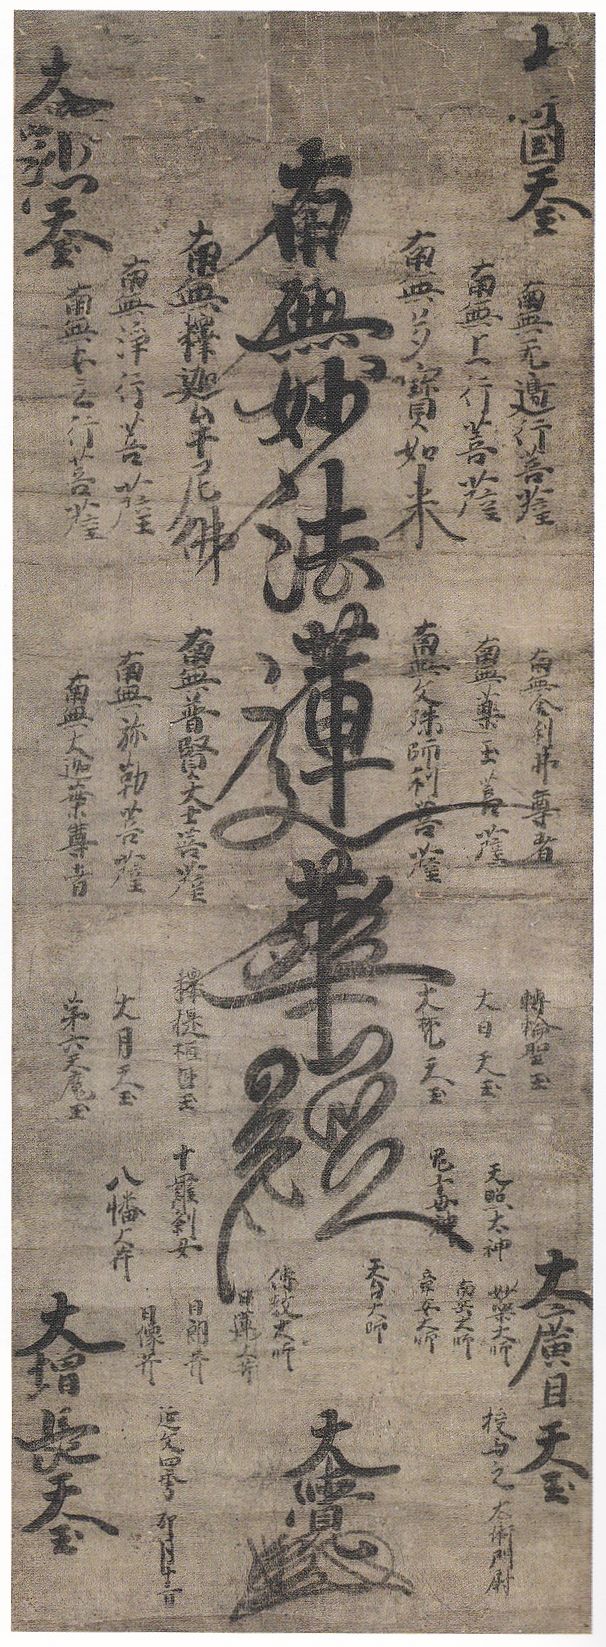 大持国天王
南無无邊行菩薩
南無上行菩薩
南無多寳如来
南無妙法蓮華経
南無釋迦牟尼佛
南無浄行菩薩
南無安立行菩薩
大毗沙門天王
南無舎利弗尊者
南無薬王菩薩
南無文殊師利菩薩
南無普賢大士菩薩
南無弥勒菩薩
南無大迦葉尊者
轉輪聖王
大日天王
大梵天王
釋提桓因王
大月天王
第六天魔王
天照太神
鬼子母神
十羅刹女
八幡大𦬇
大廣目天王
妙樂大師
南岳大師
章安大師
天台大師
傳教大師
日蓮大𦬇
日朗𦬇
日像𦬇
大増長天王
授与之
大覺
延文四年卯月十三日